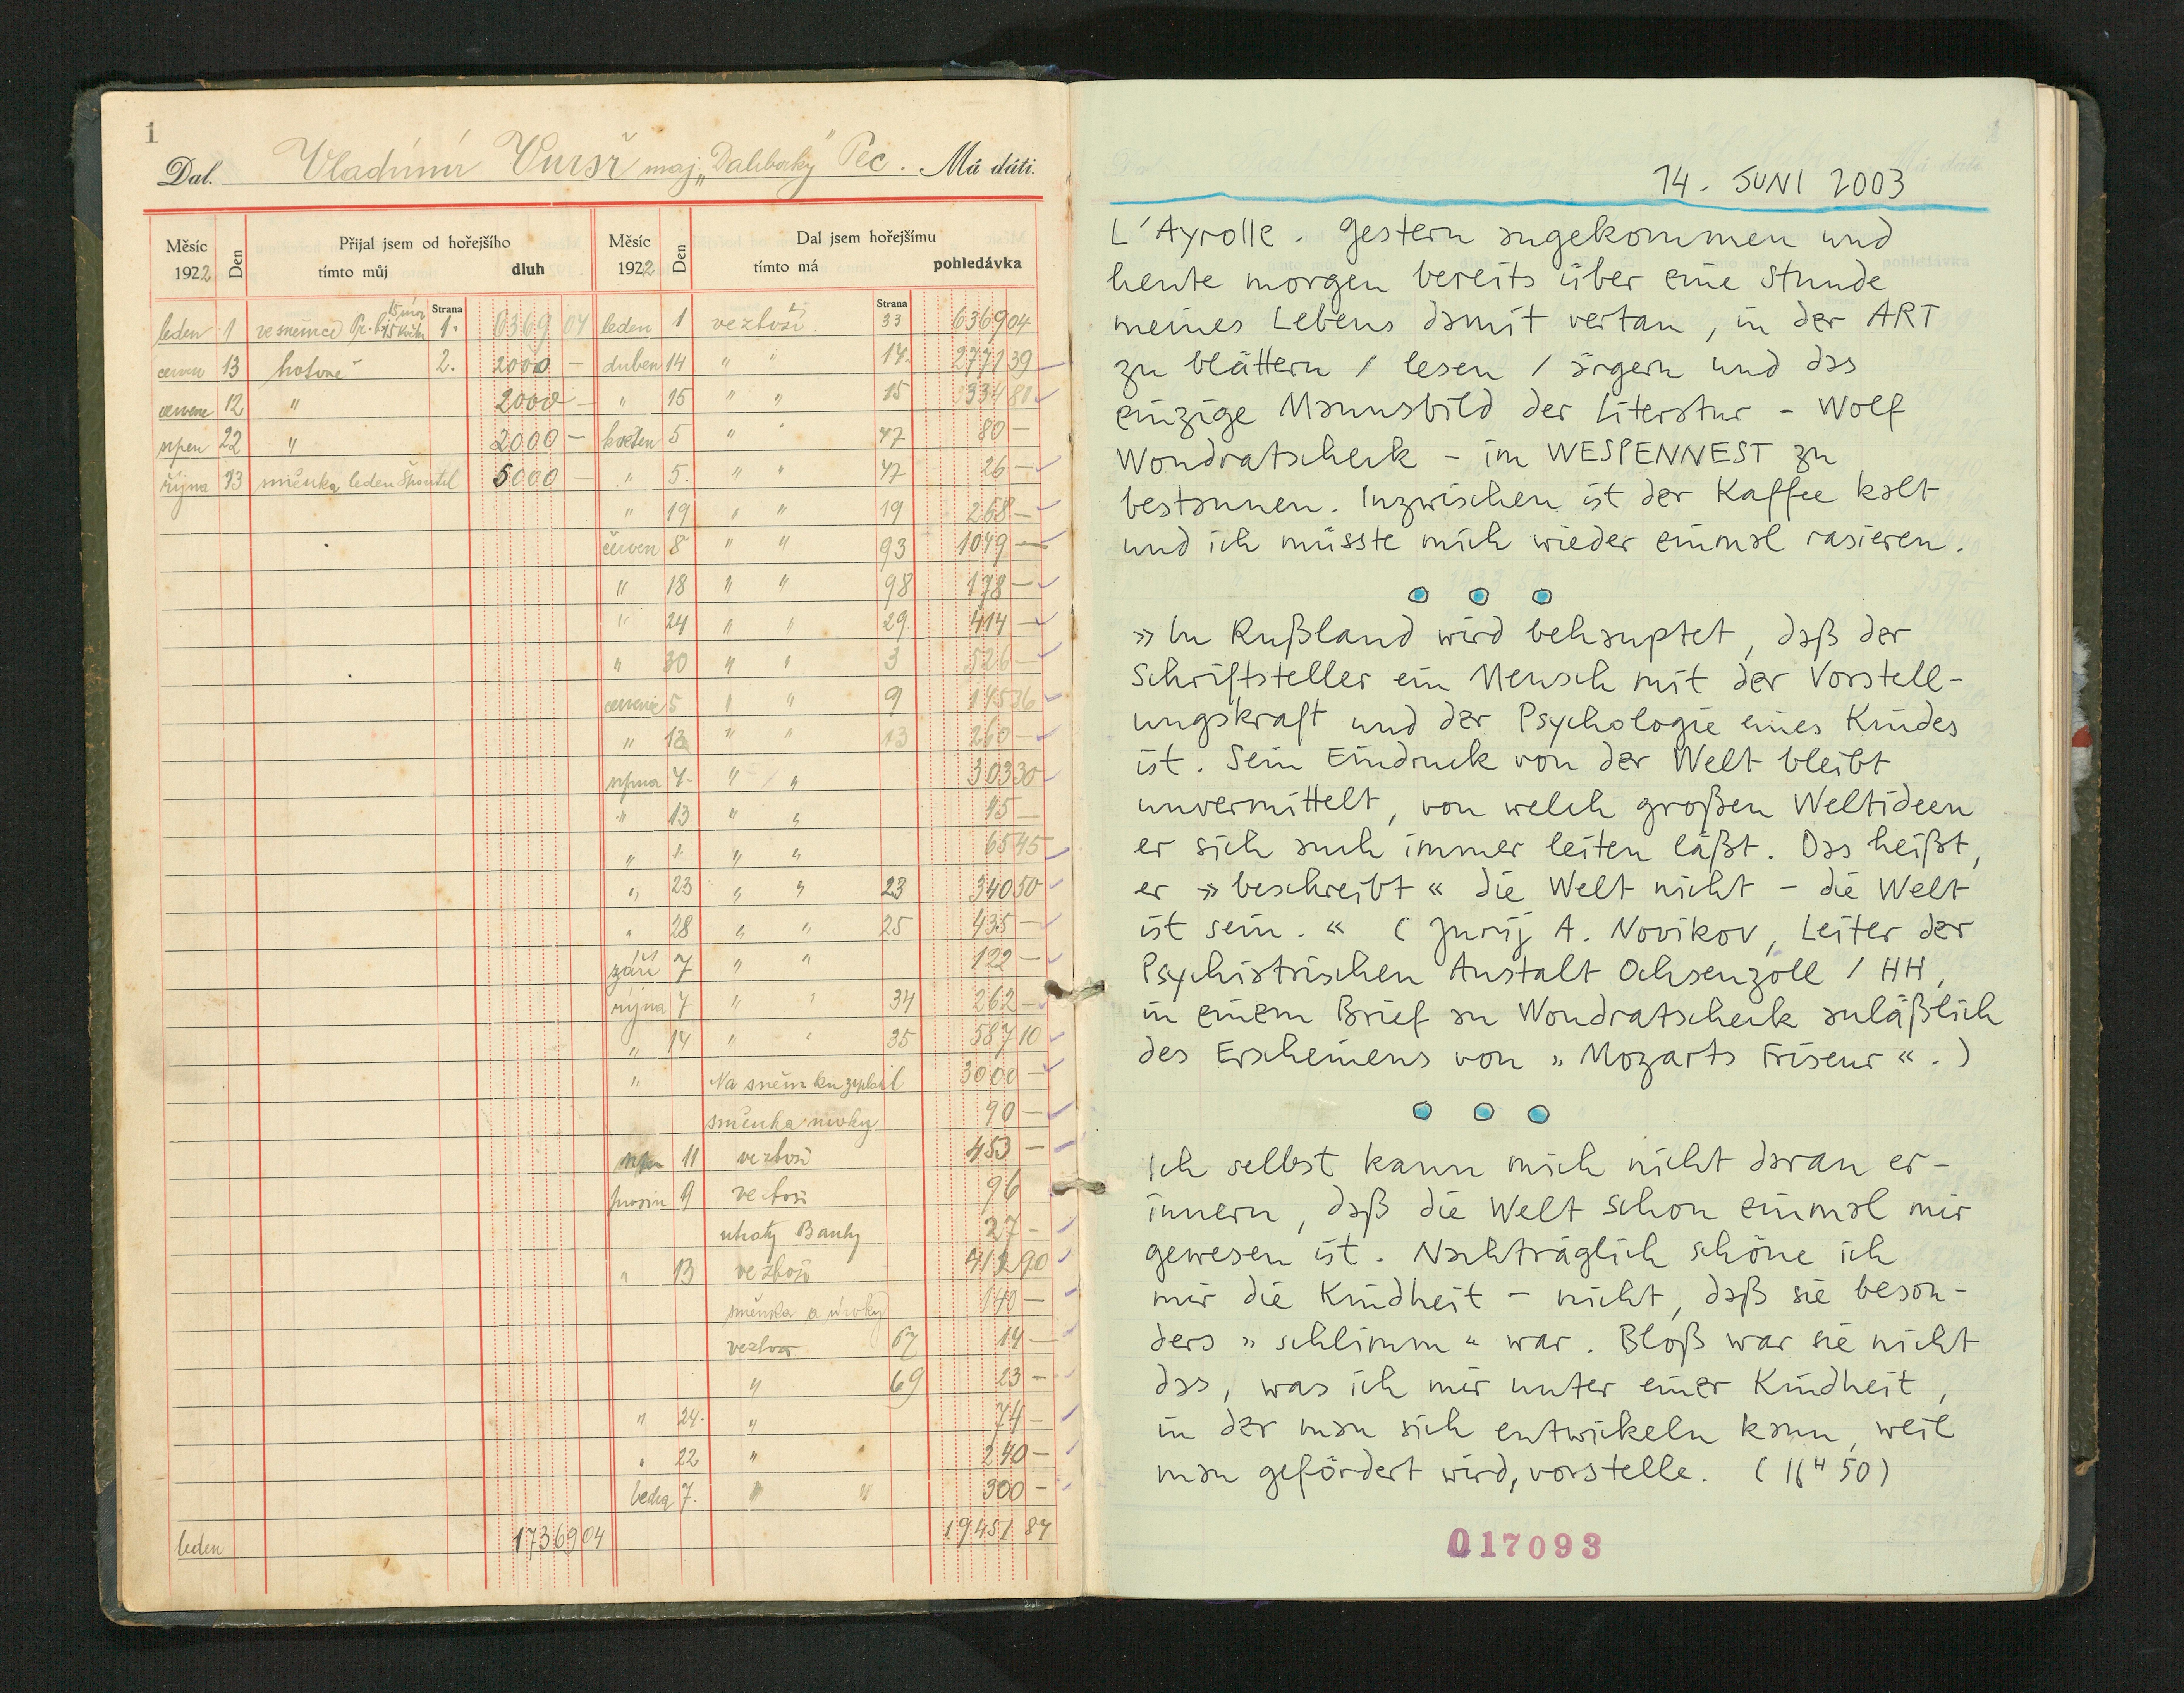 1
Dal. Vladimír maj. „ Pec. Má dáti.
Měsíc 1922 Den Přijal jsem od hořejšího tímto můj dluh Měsíc 1922 Den Dal jsem hořejšímu tímto má pohledávka
Strana Strana
leden 1 1. 6369 04 leden 1 ve zboží 33 6369 04
červen 13 hotově 2. 2000 — duben 14 " " 14. 2771 39
12 " 2000 — " 15 " " 15 334 80
srpen 22 " 2000 — květen 5 " " 47 80 —
října 13 směnka leden 5000 — " 5. " " 47 26 —
" 19 " " 19 268 —
červen 8 " " 93 1049 —
" 18 " " 98 178 —
" 24 " " 29 414 —
" 30 " " 3 526 —
5 " " 9 145 36
" 13 " " 13 260 —
srpna 4 " " 303 30
" 13 " " 45 —
" " " 65 45
" 23 " " 23 340 50
" 28 " " 25 435 —
září 7 " " 122 —
října 7 " " 34 262 —
" 14 " " 35 587 10
" Na 3000 —
směnka úroky 90 —
11 ve zboží 453 —
prosin 9 ve zboží 96
27 —
" 13 ve zboží 412 90
směnka a úroky 140 —
67 14 —
" 69 23 —
" 24. " 74 —
" 22 " 240 —
7. " " 300 —
leden 17369 04 19451 87
14. JUNI 2003
L'Ayrolle. Gestern angekommen und
heute morgen bereits über eine Stunde
meines Lebens damit vertan, in der ART
zu blättern / lesen / ärgern und das
einzige Mannsbild der Literatur – Wolf
Wondratschek – im WESPENNEST zu
bestaunen. Inzwischen ist der Kaffee kalt
und ich müsste mich wieder einmal rasieren.
» In Rußland wird behauptet, daß der
Schriftsteller ein Mensch mit der Vorstell-
ungskraft und der Psychologie eines Kindes
ist. Sein Eindruck von der Welt bleibt
unvermittelt, von welch großen Weltideen
er sich auch immer leiten läßt. Das heißt,
er » beschreibt « die Welt nicht – die Welt
ist sein. « (Jurij A. Novikov, Leiter der
Psychiatrischen Anstalt Ochsenzoll / HH,
in einem Brief an Wondratschek anläßlich
des Erscheinens von » Mozarts Friseur «.)
Ich selbst kann mich nicht daran er-
innern, daß die Welt schon einmal mir
gewesen ist. Nachträglich schöne ich
mir die Kindheit – nicht, daß sie beson-
ders » schlimm « war. Bloß war sie nicht
das, was ich mir unter einer Kindheit,
in der man sich entwickeln kann, weil
man gefördert wird, vorstelle. (16ᴴ 50)
017093